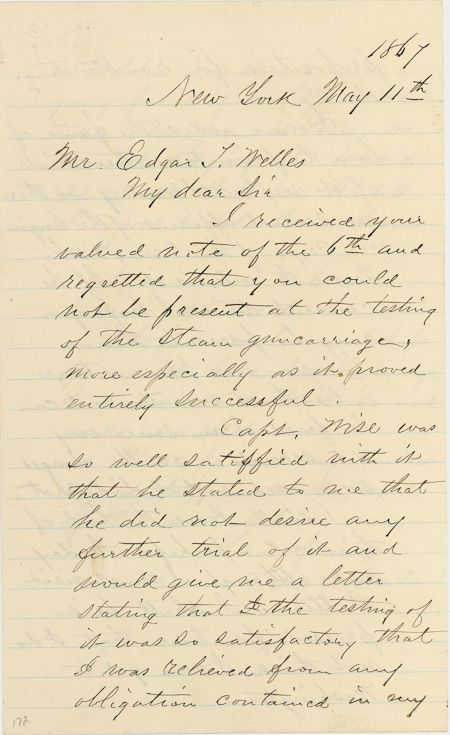 1867
New York May 11th
Mr. Edgar T. Welles
My dear Sir
I received your
valued note of the 6th and
regretted that you could
not be present at the testing
of the steam guncarriage,
more especially as it proved
entirely successful.
Capt. Wise was
so well satisfied with it
that he stated to me that
he did not desire any
further trial of it and
would give me a letter
stating that the testing of
it was so satisfactory that
I was relieved from any
obligation contained in my
172